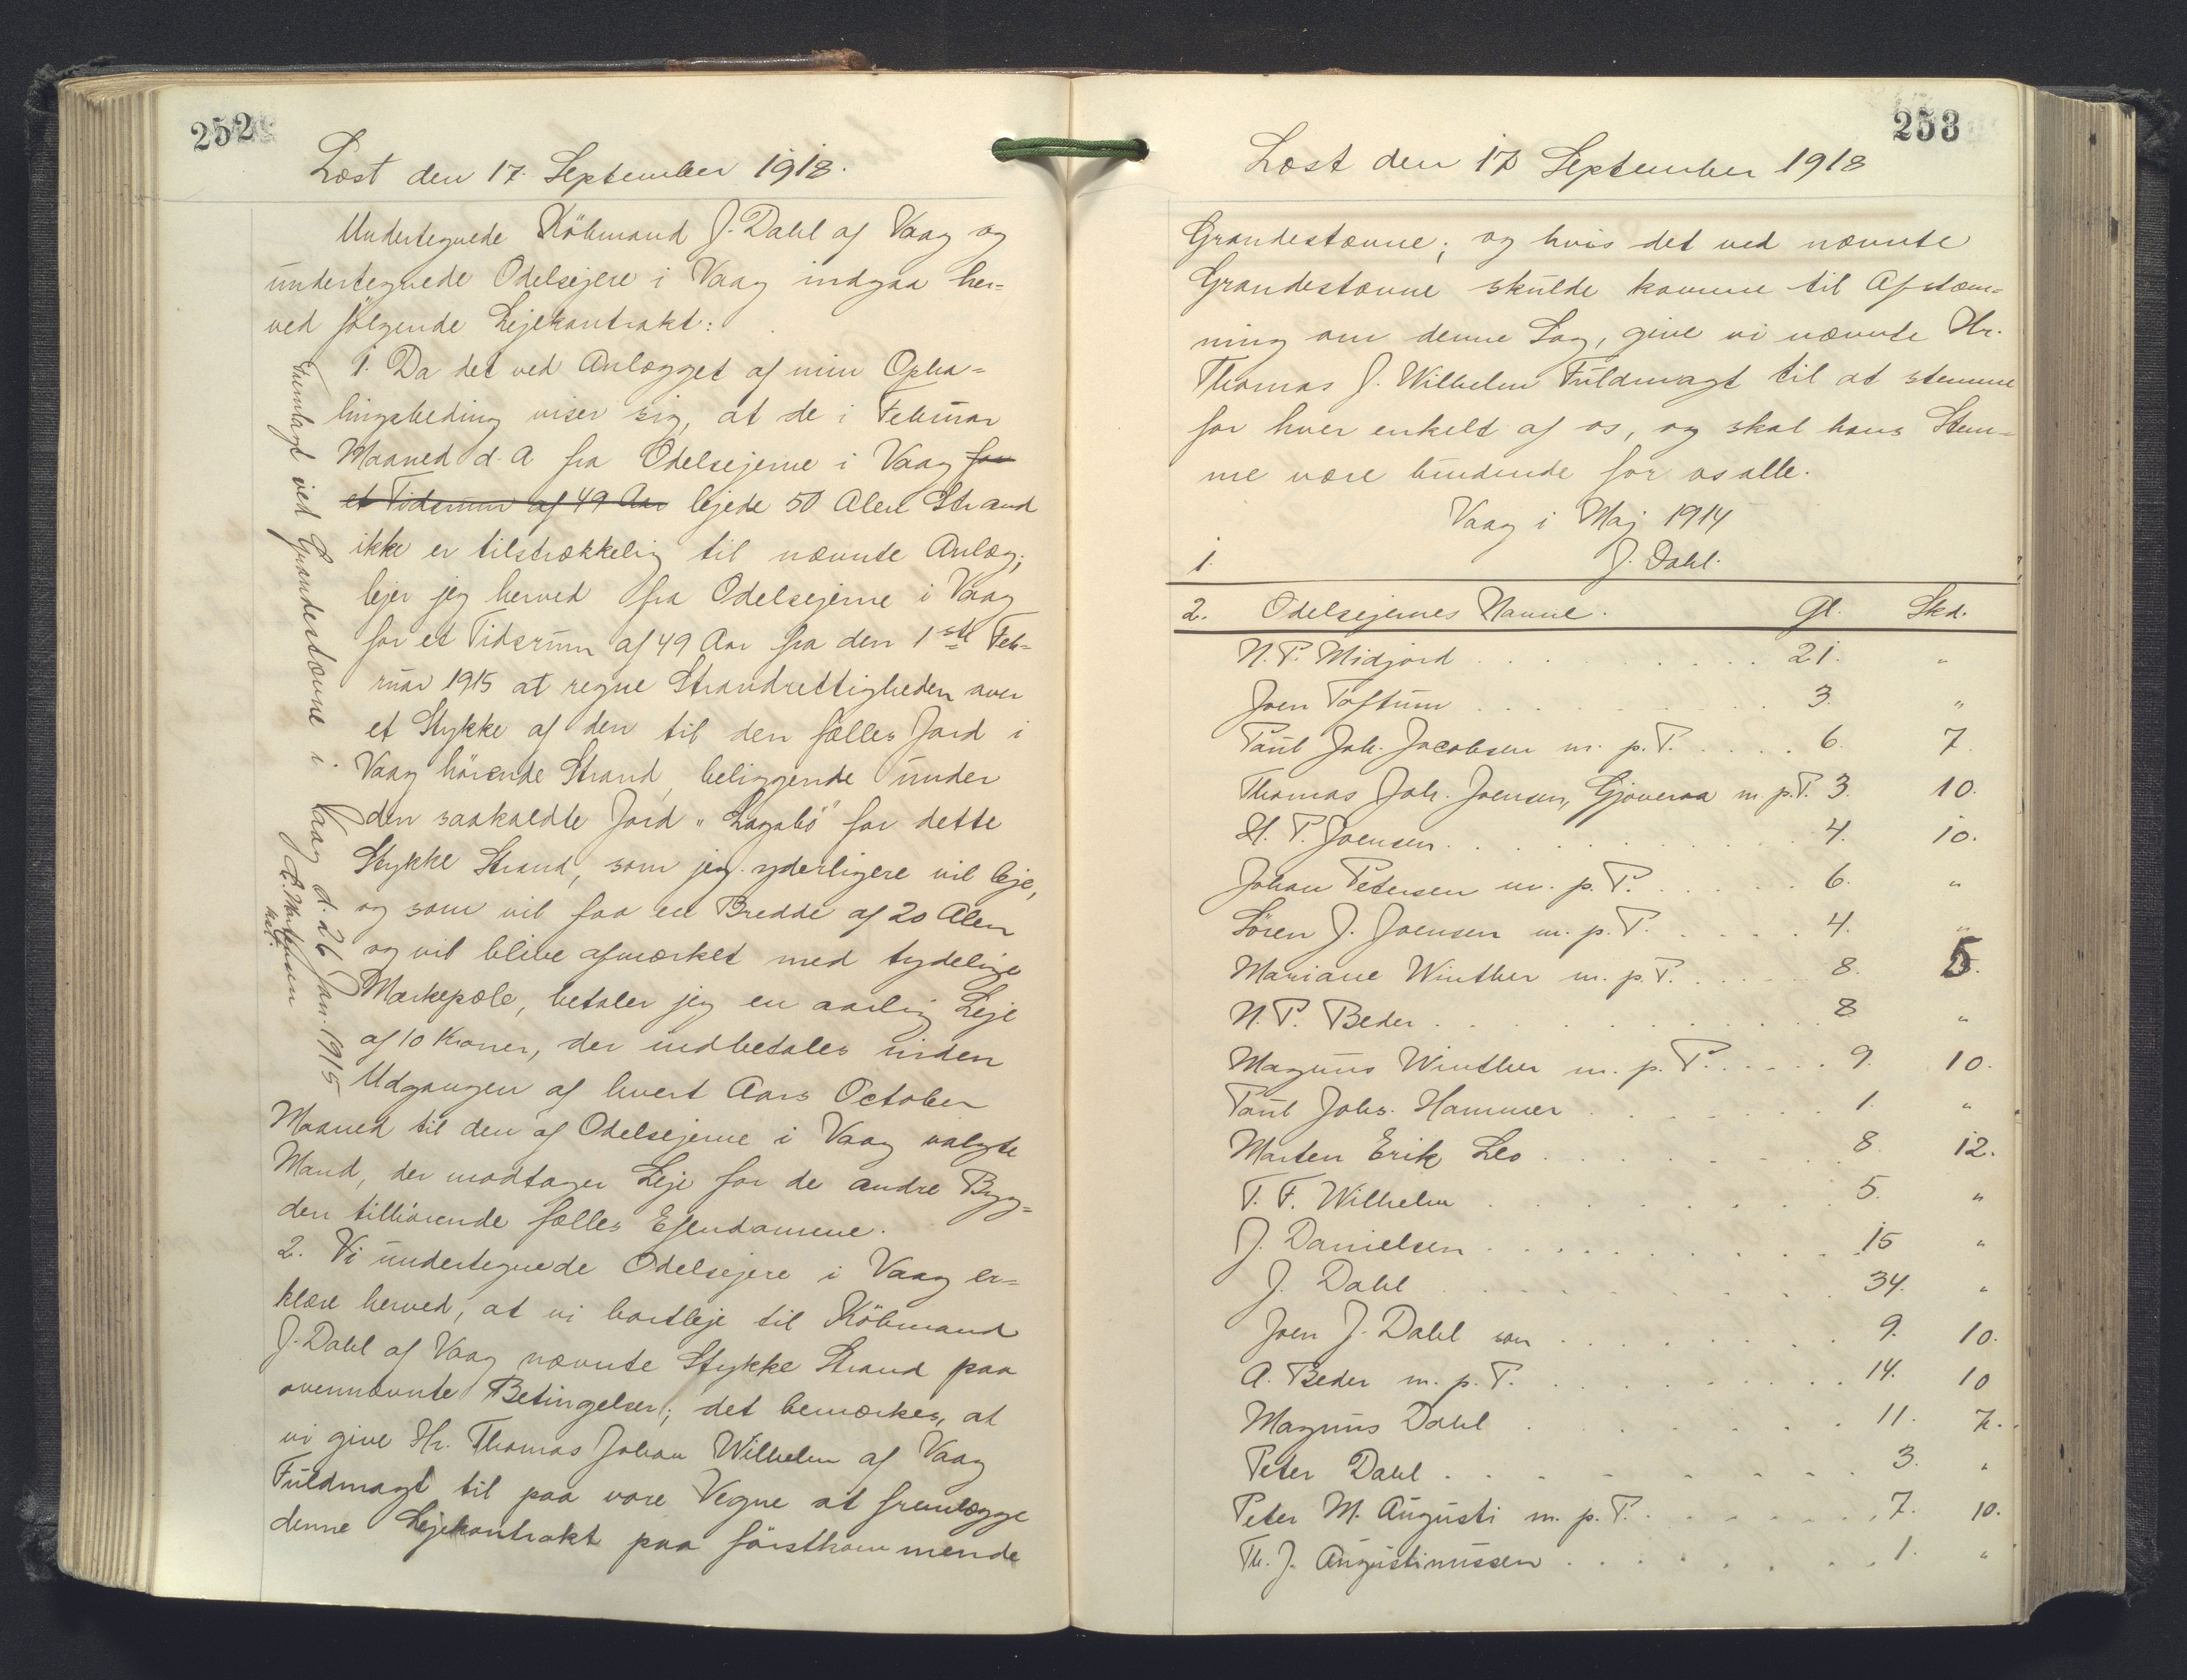 252
Læst den 17. September 1918.
Undertegnede Købmand J. Dahl af Vaag og
undertegnede Odelsejere i Vaag indgaa her=
ved følgende Lejekontrakt:
1. Da det ved Anlægget af min Opha=
lingsbeding viser sig, at de i Februar
Maaned d. A fra Odelsejerne i Vaag for
et Tidsrum af 49 Aar lejede 50 Alen Strand
ikke er tilstrækkelig til nævnte Anlæg;
lejer jeg herved fra Odelsejerne i Vaag
for et Tidsrum af 49 Aar fra den 1ste Feb=
ruar 1915 at regne Strandrettigheden over
et Stykke af den til den fælles Jord i
Vaag hörende Strand, beliggende under
den saakaldte Jord "Lagabö" for dette
Stykke Strand, som jeg yderligere vil leje,
og som vil faa en Bredde af 20 Alen
og vil blive afmærket med tydelige
Mærkepæle, betaler jeg en aarlig Leje
af 10 Kroner, der indbetales inden
Udgangen af hvert Aars October
Maaned til den af Odelsejerne i Vaag valgte
Mand, der modtager Leje for de andre Byg=
den tilhörende fælles Ejendomme.
2. Vi undertegnede Odelsejere i Vaag er=
klære herved, at vi bortleje til Köbmand
J. Dahl af Vaag nævnte Stykke Strand paa
ovennævnte Betingelser; det bemærkes, at
vi give Hr. Thomas Johan Wilhelm af Vaag
Fuldmagt til paa vore Vegne at fremlægge
denne Lejekontrakt paa förstkommende
Fremlagt ved Grandestævne i Vaag d. 26 Jan. 1915
253
Læst den 17 September 1918
Grandestævne; og hvis det ved nævnte
Grandestævne skulde komme til Afstem=
ning om denne Sag, give vi nævnte Hr.
Thomas J. Wilhelm Fuldmagt til at stemme
for hver enkelt af os, og skal hans Stem=
me være bindende for os alle.
Vaag i Maj 1914
1. J. Dahl.
2. Odelsejernes Navne. Gl. Skd.
N. P. Midjord . . . 21. "
Joen Toftum . . . 3. "
Poul Joh. Jacobsen m. p. P. . . . 6. 7.
Thomas Joh. Joensen, Gjoveraa m. p. P. 3. 10.
H. P. Joensen. . . . 4. 10.
Johan Petersen m. p. P. . . . 6. "
Sören J. Joensen m. p. P. . . . 4. "
Mariane Winther m. p. P. . . . 8. 5.
N. P. Beder . . . 8 "
Magnus Winther m. p. P. . . . 9. 10.
Poul Johs. Hammer . . . 1. "
Morten Erik Leo . . . 8. 12.
T. F. Wilhelm . . . 5. "
J. Danielsen . . . 15 "
J. Dahl . . . 34. "
Joen J. Dahl son . . . 9. 10.
A. Beder m. p. P. . . . 14. 10
Magnus Dahl . . . 11. 7.
Peter Dahl . . . 3. "
Peter M. Augusti m. p. P. . . . 7. 10.
Th. J. Augustinussen . . . 1. "